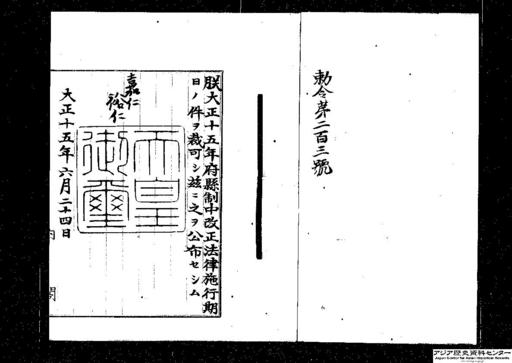 勅令第二百三號
朕大正十五年府縣制中改正法律施行期
日ノ件ヲ裁可シ茲ニ之ヲ公布セシム
嘉仁
裕仁
天皇
御璽
大正十五年六月二十四日
内閣
アジア歴史資料センター
Japan Center for Asian Historical Records